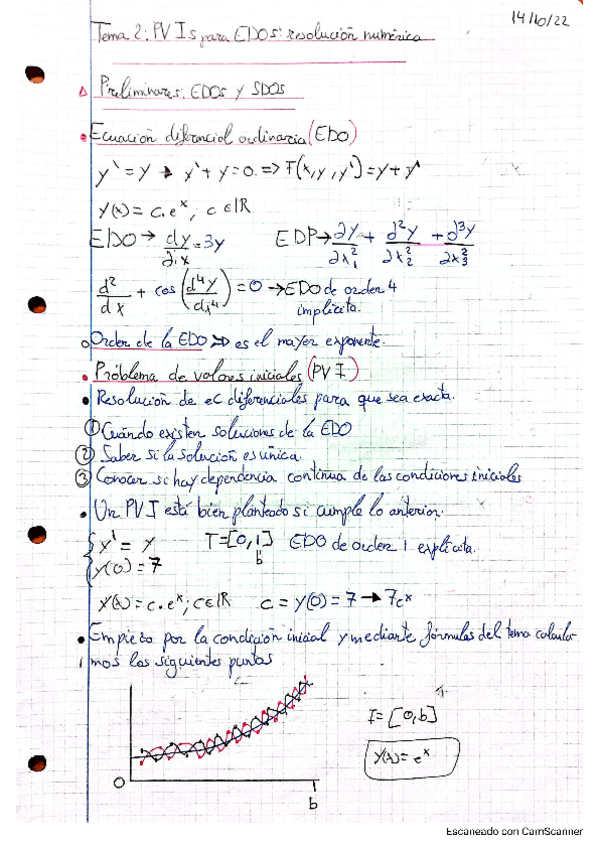 14/10/22
Tema 2: PVIs para EDOs: resolución numérica
Preliminares: EDOs y SDOs
• Ecuación diferencial ordinaria (EDO)
y' = y → y' + y = 0 => F(x, y, y') = y + y'
y(x) = c.e^x, c ∈ IR
EDO → dy/dx = 3y EDP → ∂y/∂x₁² + d²y/∂x₂² + d³y/∂x₃²
d²/dx + cos(d⁴y/dx⁴) = 0 → EDO de orden 4
implícita.
o Orden de la EDO => es el mayor exponente.
• Problema de valores iniciales (PVI)
• Resolución de ec diferenciales para que sea exacta.
① Cuándo existen soluciones de la EDO
② Saber si la solución es única.
③ Conocer si hay dependencia continua de las condiciones iniciales
• Un PVI está bien planteado si cumple lo anterior.
{ y' = y T = [0,1] EDO de orden 1 explícita.
y(0) = 7 b
y(x) = c.e^x; c ∈ IR c = y(0) = 7 → 7e^x
• Empiezo por la condición inicial y mediante fórmulas del tema calcula-
mos los siguientes puntos
I = [0,b]
y(x) = e^x
0
b
Escaneado con CamScanner